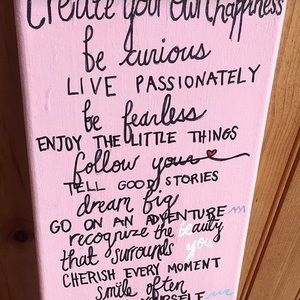 create your own happiness
be curious
LIVE PASSIONATELY
be fearless
ENJOY THE LITTLE THINGS
follow your
TELL GOOD STORIES
dream big
GO ON AN ADVENTURE
recognize the beauty
that surrounds you
CHERISH EVERY MOMENT
smile often
YOURSELF